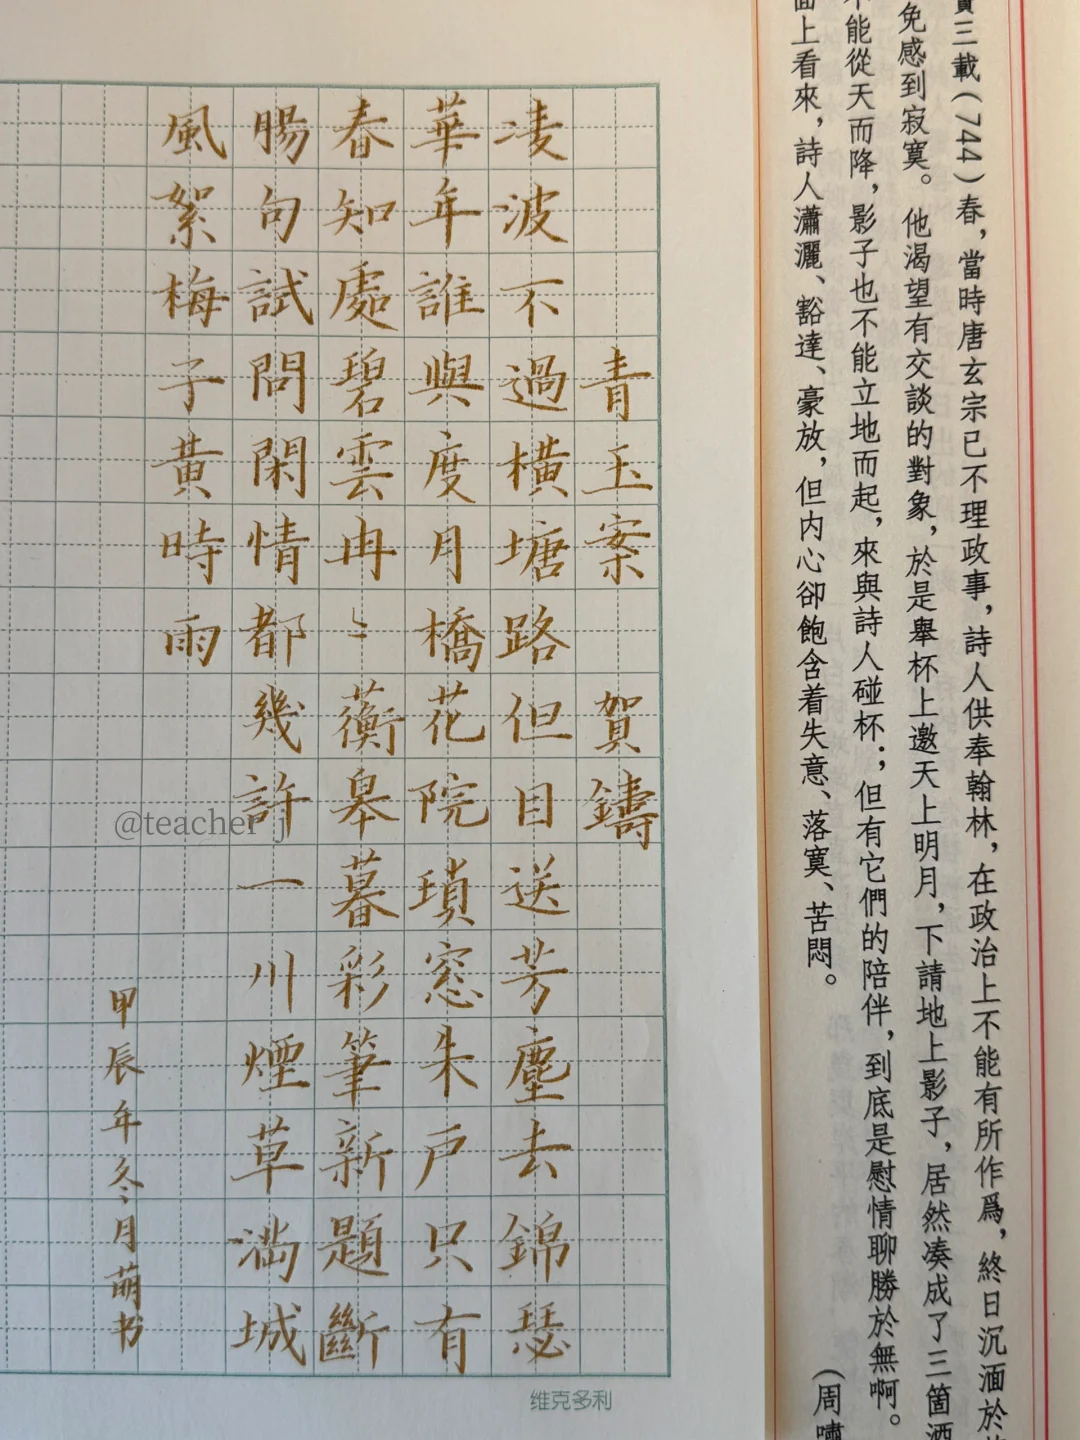 三載(744)春,當時唐玄宗已不理政事,詩人供奉翰林,在政治上不能有所作爲,終日沉湎於
免感到寂寞。他渴望有交談的對象,於是舉杯上邀天上明月,下請地上影子,居然凑成了三箇酒
不能從天而降,影子也不能立地而起,來與詩人碰杯;但有它們的陪伴,到底是慰情聊勝於無啊。
面上看來,詩人瀟灑、豁達、豪放,但内心卻飽含着失意、落寞、苦悶。
(周嘯
青玉案 賀鑄
凌波不過橫塘路但目送芳塵去錦瑟
華年誰與度月橋花院瑣窓朱戶只有
春知處碧雲冉々蘅皋暮彩筆新題斷
腸句試問閑情都幾許一川煙草滿城
風絮梅子黃時雨
甲辰年冬月萌书
@teacher j
维克多利